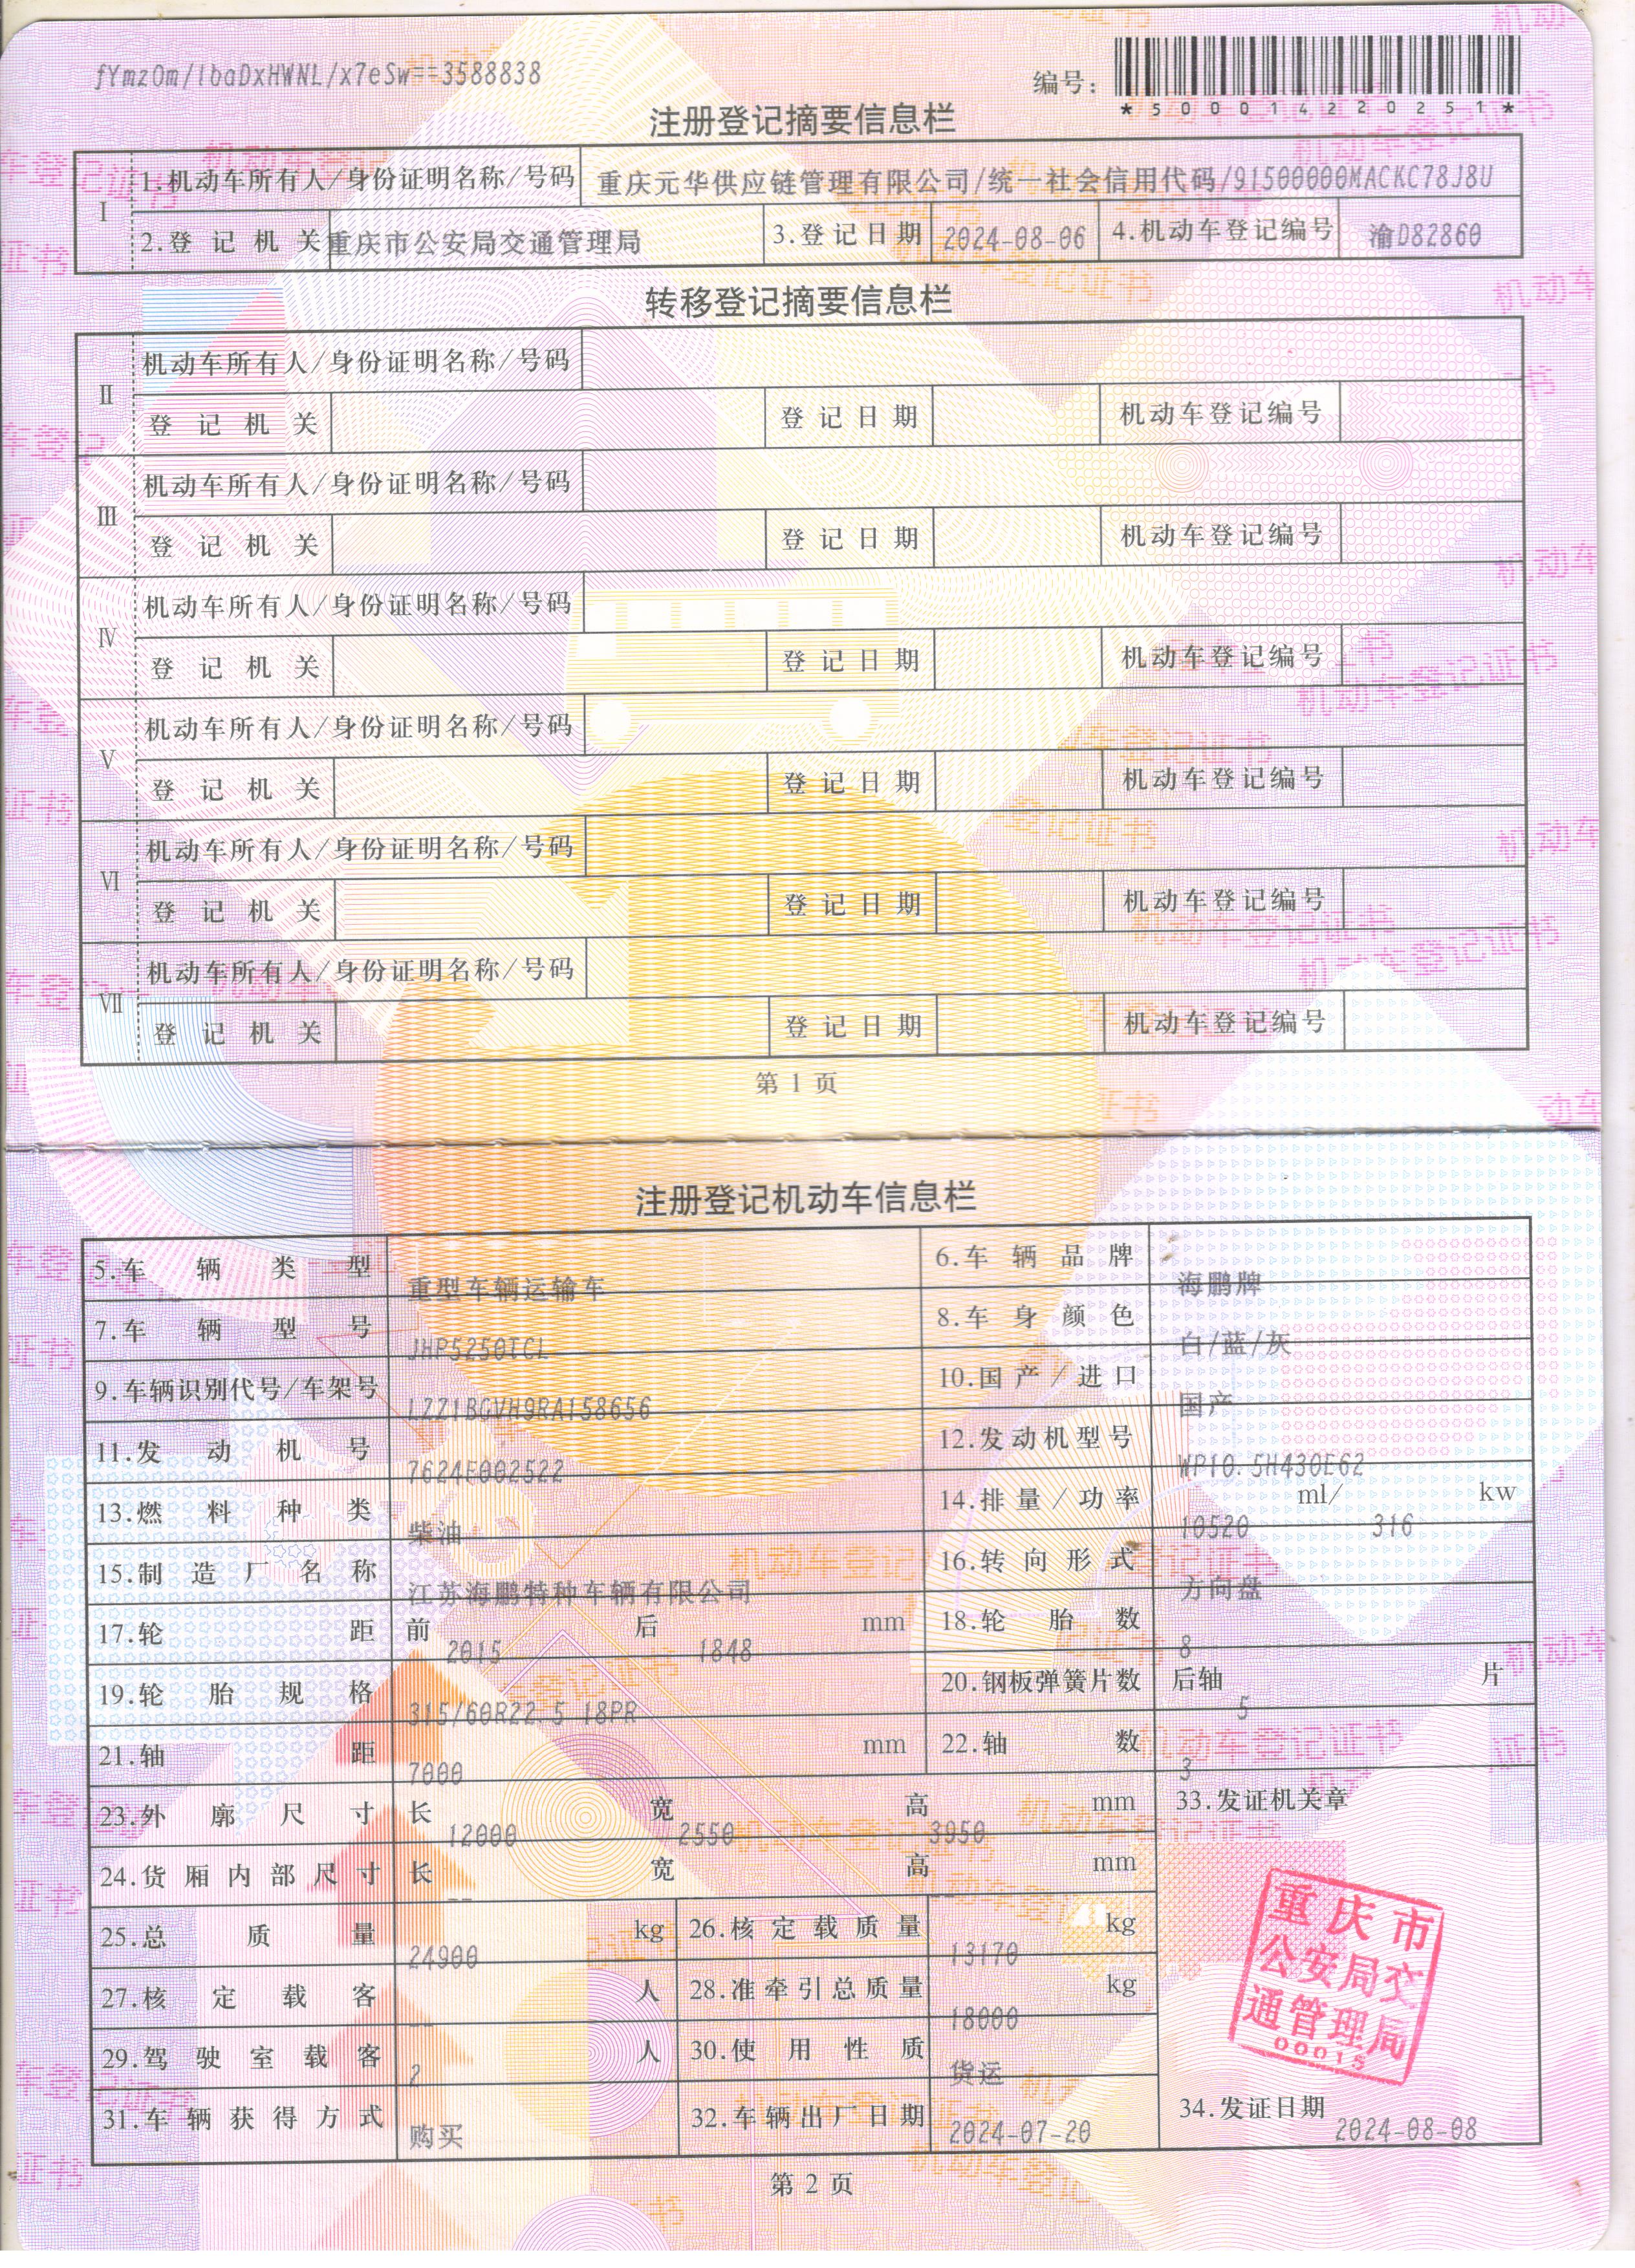 fYmzOm/lbaDxHWNL/x7eSw==3588838
编号：
*500014220251*
注册登记摘要信息栏
I
1.机动车所有人/身份证明名称/号码 重庆元华供应链管理有限公司/统一社会信用代码/91500000MACKC78J8U
2.登记机关 重庆市公安局交通管理局 3.登记日期 2024-08-06 4.机动车登记编号 渝D82860
转移登记摘要信息栏
II
机动车所有人/身份证明名称/号码
登记机关 登记日期 机动车登记编号
III
机动车所有人/身份证明名称/号码
登记机关 登记日期 机动车登记编号
IV
机动车所有人/身份证明名称/号码
登记机关 登记日期 机动车登记编号
V
机动车所有人/身份证明名称/号码
登记机关 登记日期 机动车登记编号
VI
机动车所有人/身份证明名称/号码
登记机关 登记日期 机动车登记编号
VII
机动车所有人/身份证明名称/号码
登记机关 登记日期 机动车登记编号
第 1 页
注册登记机动车信息栏
5.车辆类型 重型车辆运输车 6.车辆品牌 海鹏牌
7.车辆型号 JHP5250TCL 8.车身颜色 白/蓝/灰
9.车辆识别代号/车架号 LZZ1BGVH9RA158656 10.国产/进口 国产
11.发动机号 7624F002522 12.发动机型号 WP10.5H430E62
13.燃料种类 柴油 14.排量/功率 10520 ml/ 316 kw
15.制造厂名称 江苏海鹏特种车辆有限公司 16.转向形式 方向盘
17.轮距 前 2015 后 1848 mm 18.轮胎数 8
19.轮胎规格 315/60R22.5 18PR 20.钢板弹簧片数 后轴 5 片
21.轴距 7000 mm 22.轴数 3
23.外廓尺寸 长 12000 宽 2550 高 3950 mm 33.发证机关章
24.货厢内部尺寸 长 -- 宽 -- 高 -- mm
25.总质量 24900 kg 26.核定载质量 13170 kg
27.核定载客 -- 人 28.准牵引总质量 18000 kg
29.驾驶室载客 2 人 30.使用性质 货运
31.车辆获得方式 购买 32.车辆出厂日期 2024-07-20 34.发证日期 2024-08-08
重庆市
公安局交
通管理局
00015
第 2 页